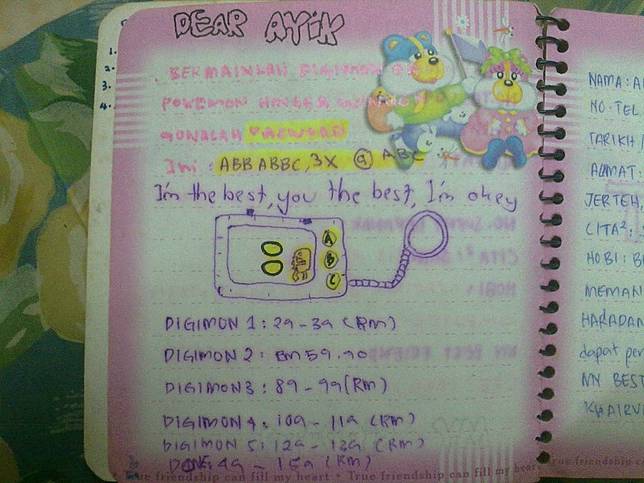 1.
2.
3.
4.
DEAR AYIK
BERMAINLAH DIGIMON
POKEMON HINGGA
GUNALAH PASSWORD
Ini : ABBABBC, 3X @ ABC
I'm the best, you the best, I'm okey
A
B
C
DIGIMON 1 : 29 - 39 (RM)
DIGIMON 2 : RM 59.90
DIGIMON 3 : 89 - 99 (RM)
DIGIMON 4 : 109 - 119 (RM)
DIGIMON 5 : 129 - 139 (RM)
49 - 159 (RM)
True friendship can fill my heart * True friendship can fill my heart
NAMA : A
NO. TEL
TARIKH /
ALAMAT :
JERTEH,
CITA² :
HOBI : B
MEMAN
HARAPAN
dapat per
MY BEST
KHAIRU
True friend